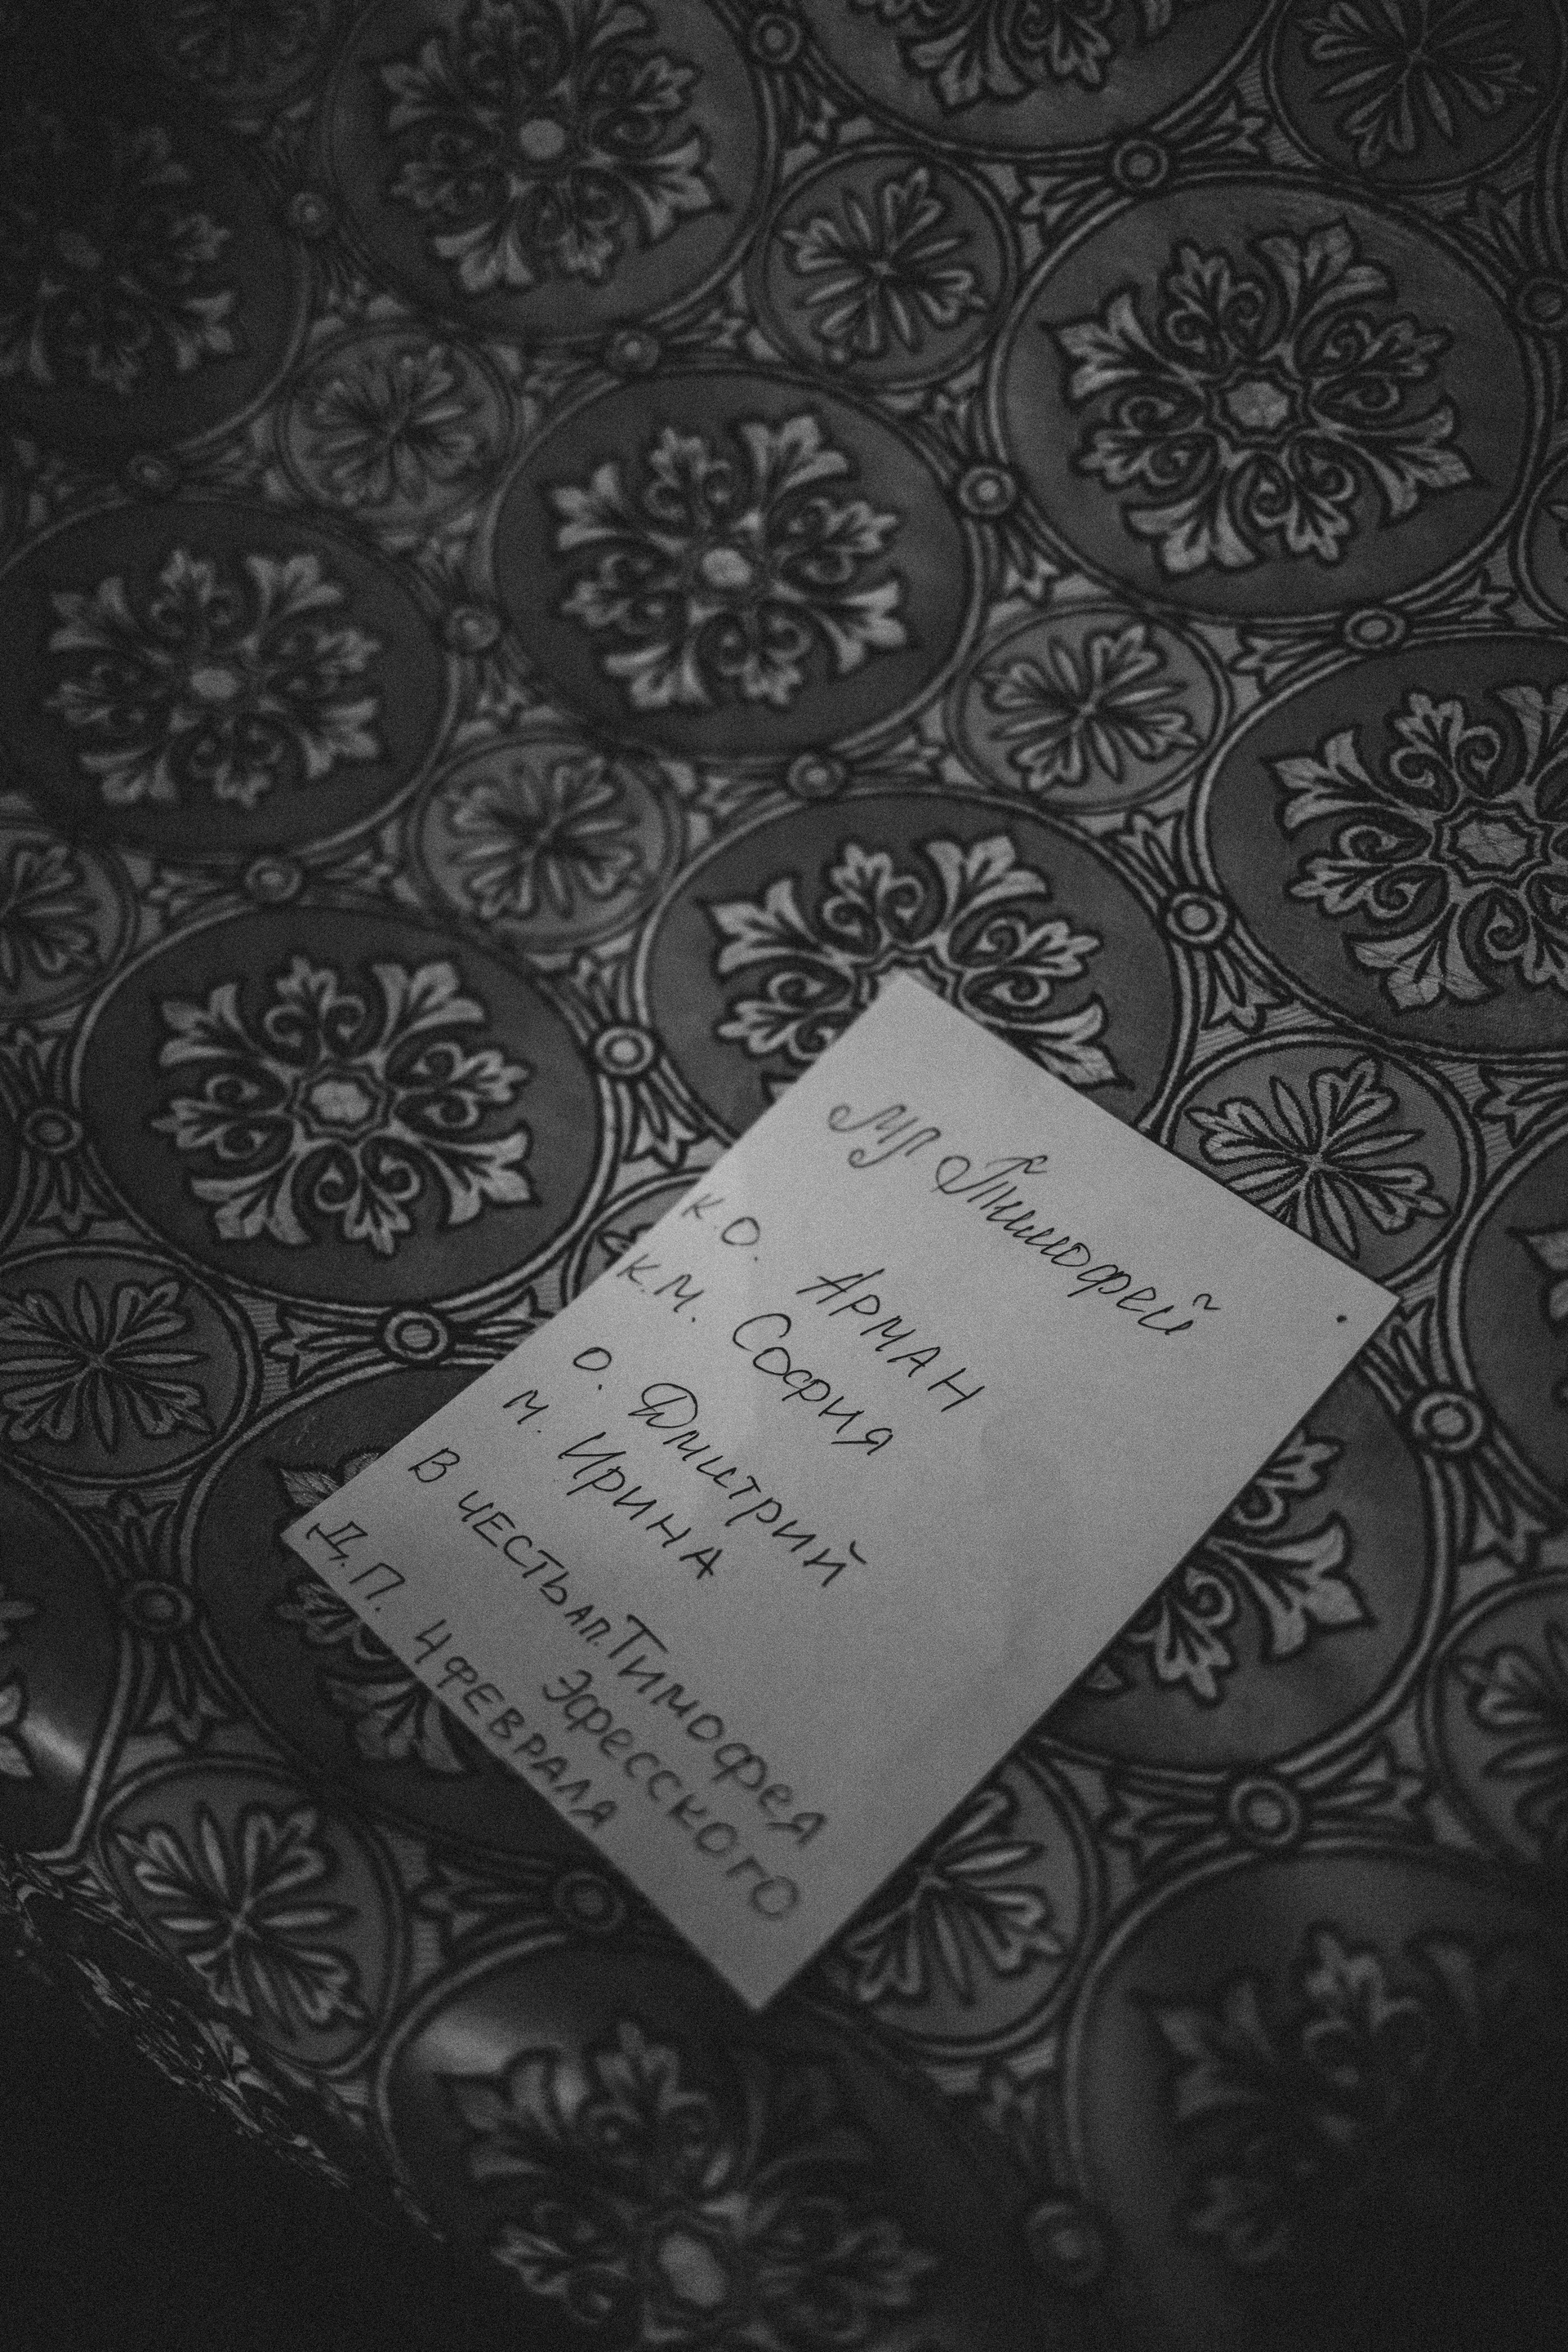 мл Тимофей
К.О. Арман
К.М. София
О. Дмитрий
М. Ирина
В ЧЕСТЬ ап. Тимофея
Эфесского
Д.П. 4 ФЕВРАЛЯ